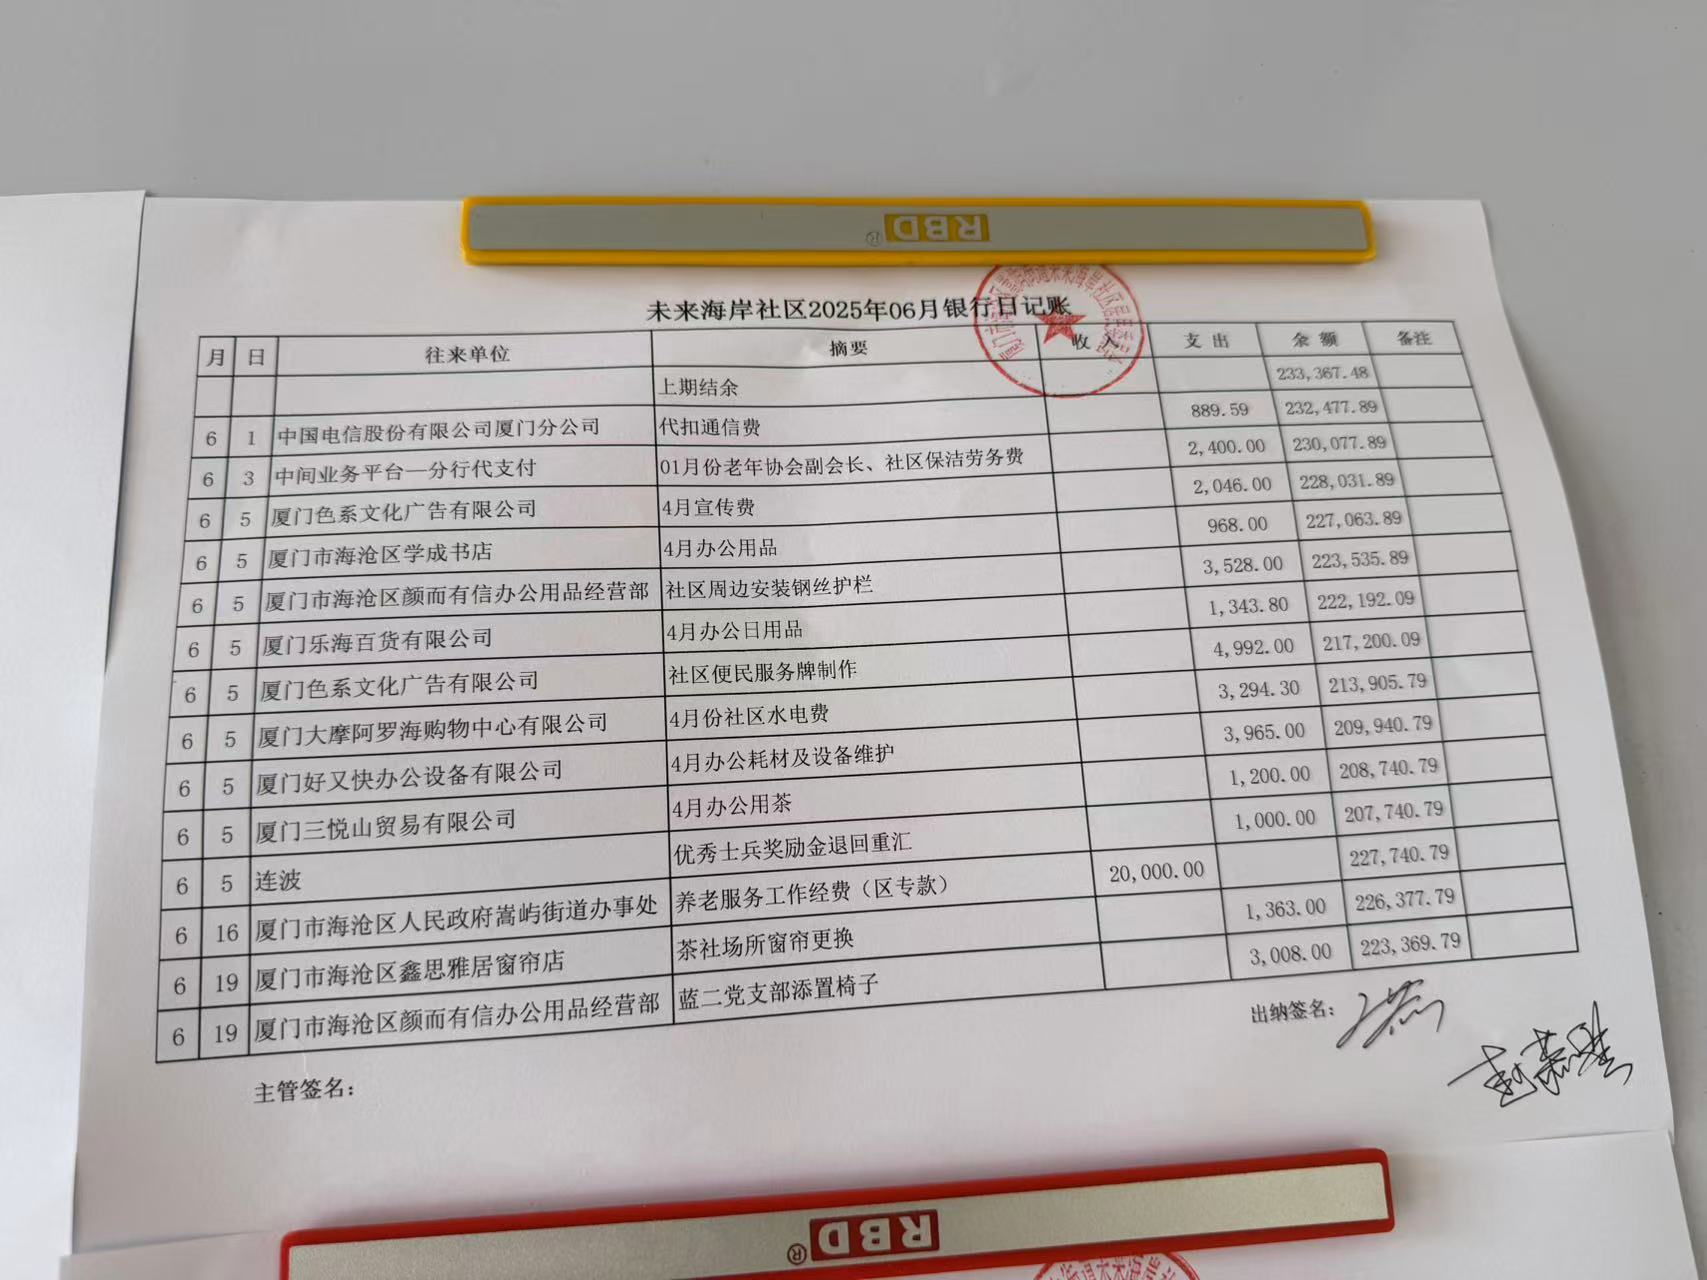 RBD®
未来海岸社区2025年06月银行日记账
月 日 往来单位 摘要 收入 支出 余额 备注
上期结余 233,367.48
6 1 中国电信股份有限公司厦门分公司 代扣通信费 889.59 232,477.89
6 3 中间业务平台—分行代支付 01月份老年协会副会长、社区保洁劳务费 2,400.00 230,077.89
6 5 厦门色系文化广告有限公司 4月宣传费 2,046.00 228,031.89
6 5 厦门市海沧区学成书店 4月办公用品 968.00 227,063.89
6 5 厦门市海沧区颜而有信办公用品经营部 社区周边安装钢丝护栏 3,528.00 223,535.89
6 5 厦门乐海百货有限公司 4月办公日用品 1,343.80 222,192.09
6 5 厦门色系文化广告有限公司 社区便民服务牌制作 4,992.00 217,200.09
6 5 厦门大摩阿罗海购物中心有限公司 4月份社区水电费 3,294.30 213,905.79
6 5 厦门好又快办公设备有限公司 4月办公耗材及设备维护 3,965.00 209,940.79
6 5 厦门三悦山贸易有限公司 4月办公用茶 1,200.00 208,740.79
6 5 连波 优秀士兵奖励金退回重汇 1,000.00 207,740.79
6 16 厦门市海沧区人民政府嵩屿街道办事处 养老服务工作经费（区专款） 20,000.00 227,740.79
6 19 厦门市海沧区鑫思雅居窗帘店 茶社场所窗帘更换 1,363.00 226,377.79
6 19 厦门市海沧区颜而有信办公用品经营部 蓝二党支部添置椅子 3,008.00 223,369.79
主管签名： 出纳签名：
RBD®